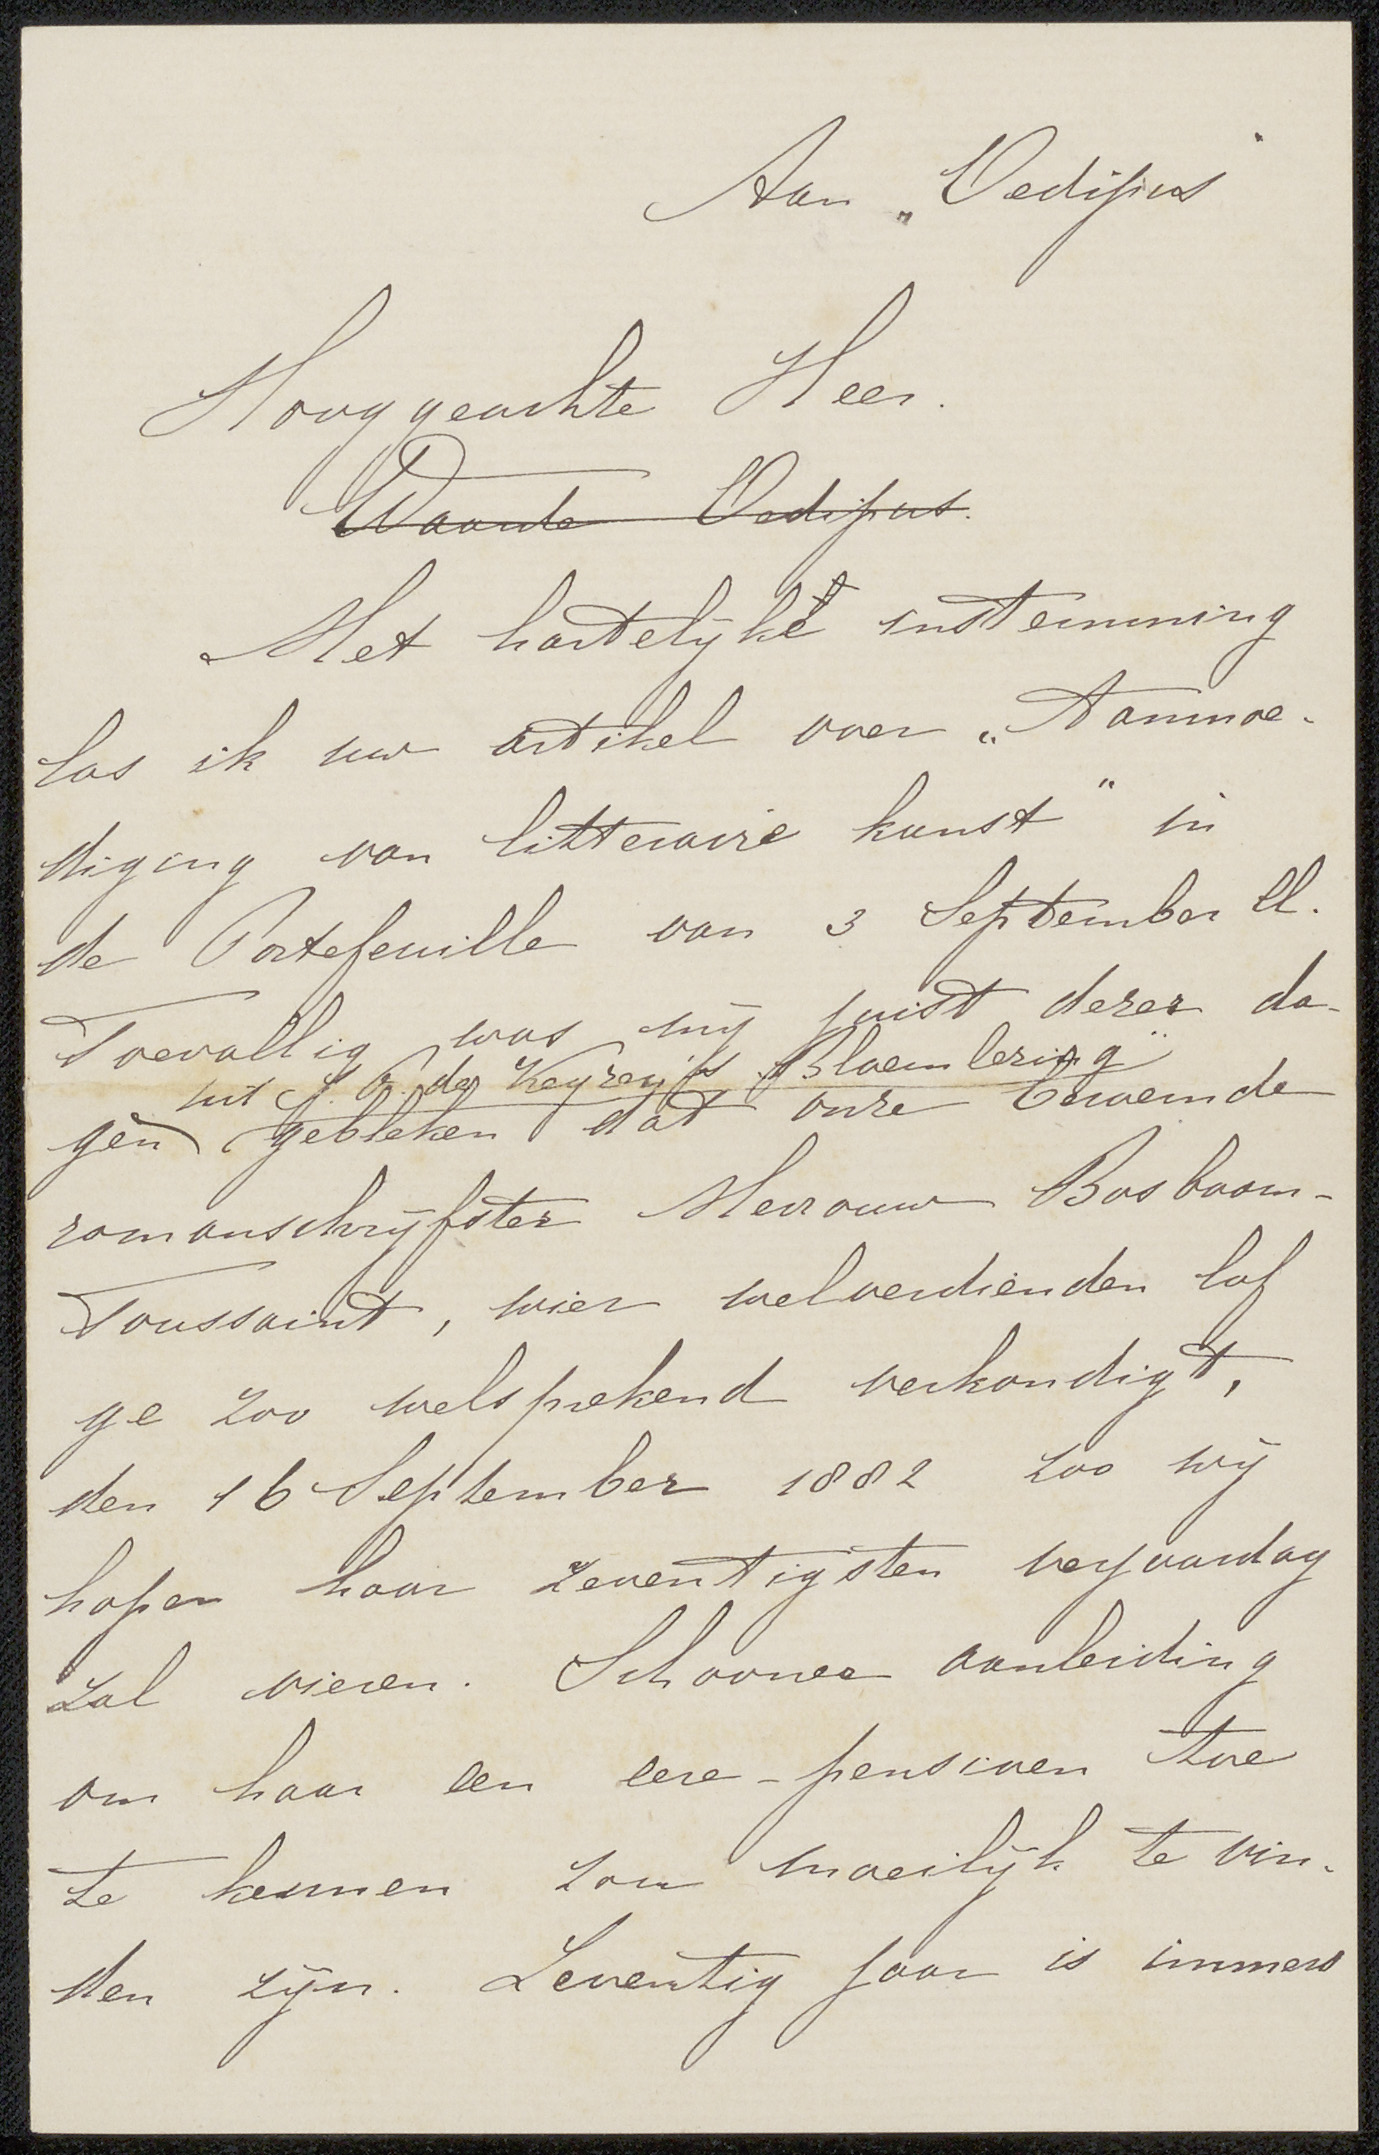 Aan „Oedipus"
Hooggeachte Heer.
Waarde Oedipus.
Met hartelijke instemming
las ik uw artikel over „Aanmoe-
diging van litteraire kunst" in
de Portefeuille van 3 September ll.
Toevallig was mij juist dezer da-
uit J. P. de Keyzer's „Bloemlezing"
gen gebleken dat onze beroemde
romanschrijfster Mevrouw Bosboom-
Toussaint, wier welverdienden lof
ge zoo welsprekend verkondigt,
den 16 September 1882 zoo wij
hopen haar zeventigsten verjaardag
zal vieren. Schoonee aanleiding
om haar een eere-pensioen toe
te kennen zou moeilijk te vin-
den zijn. Zeventig jaar is immers